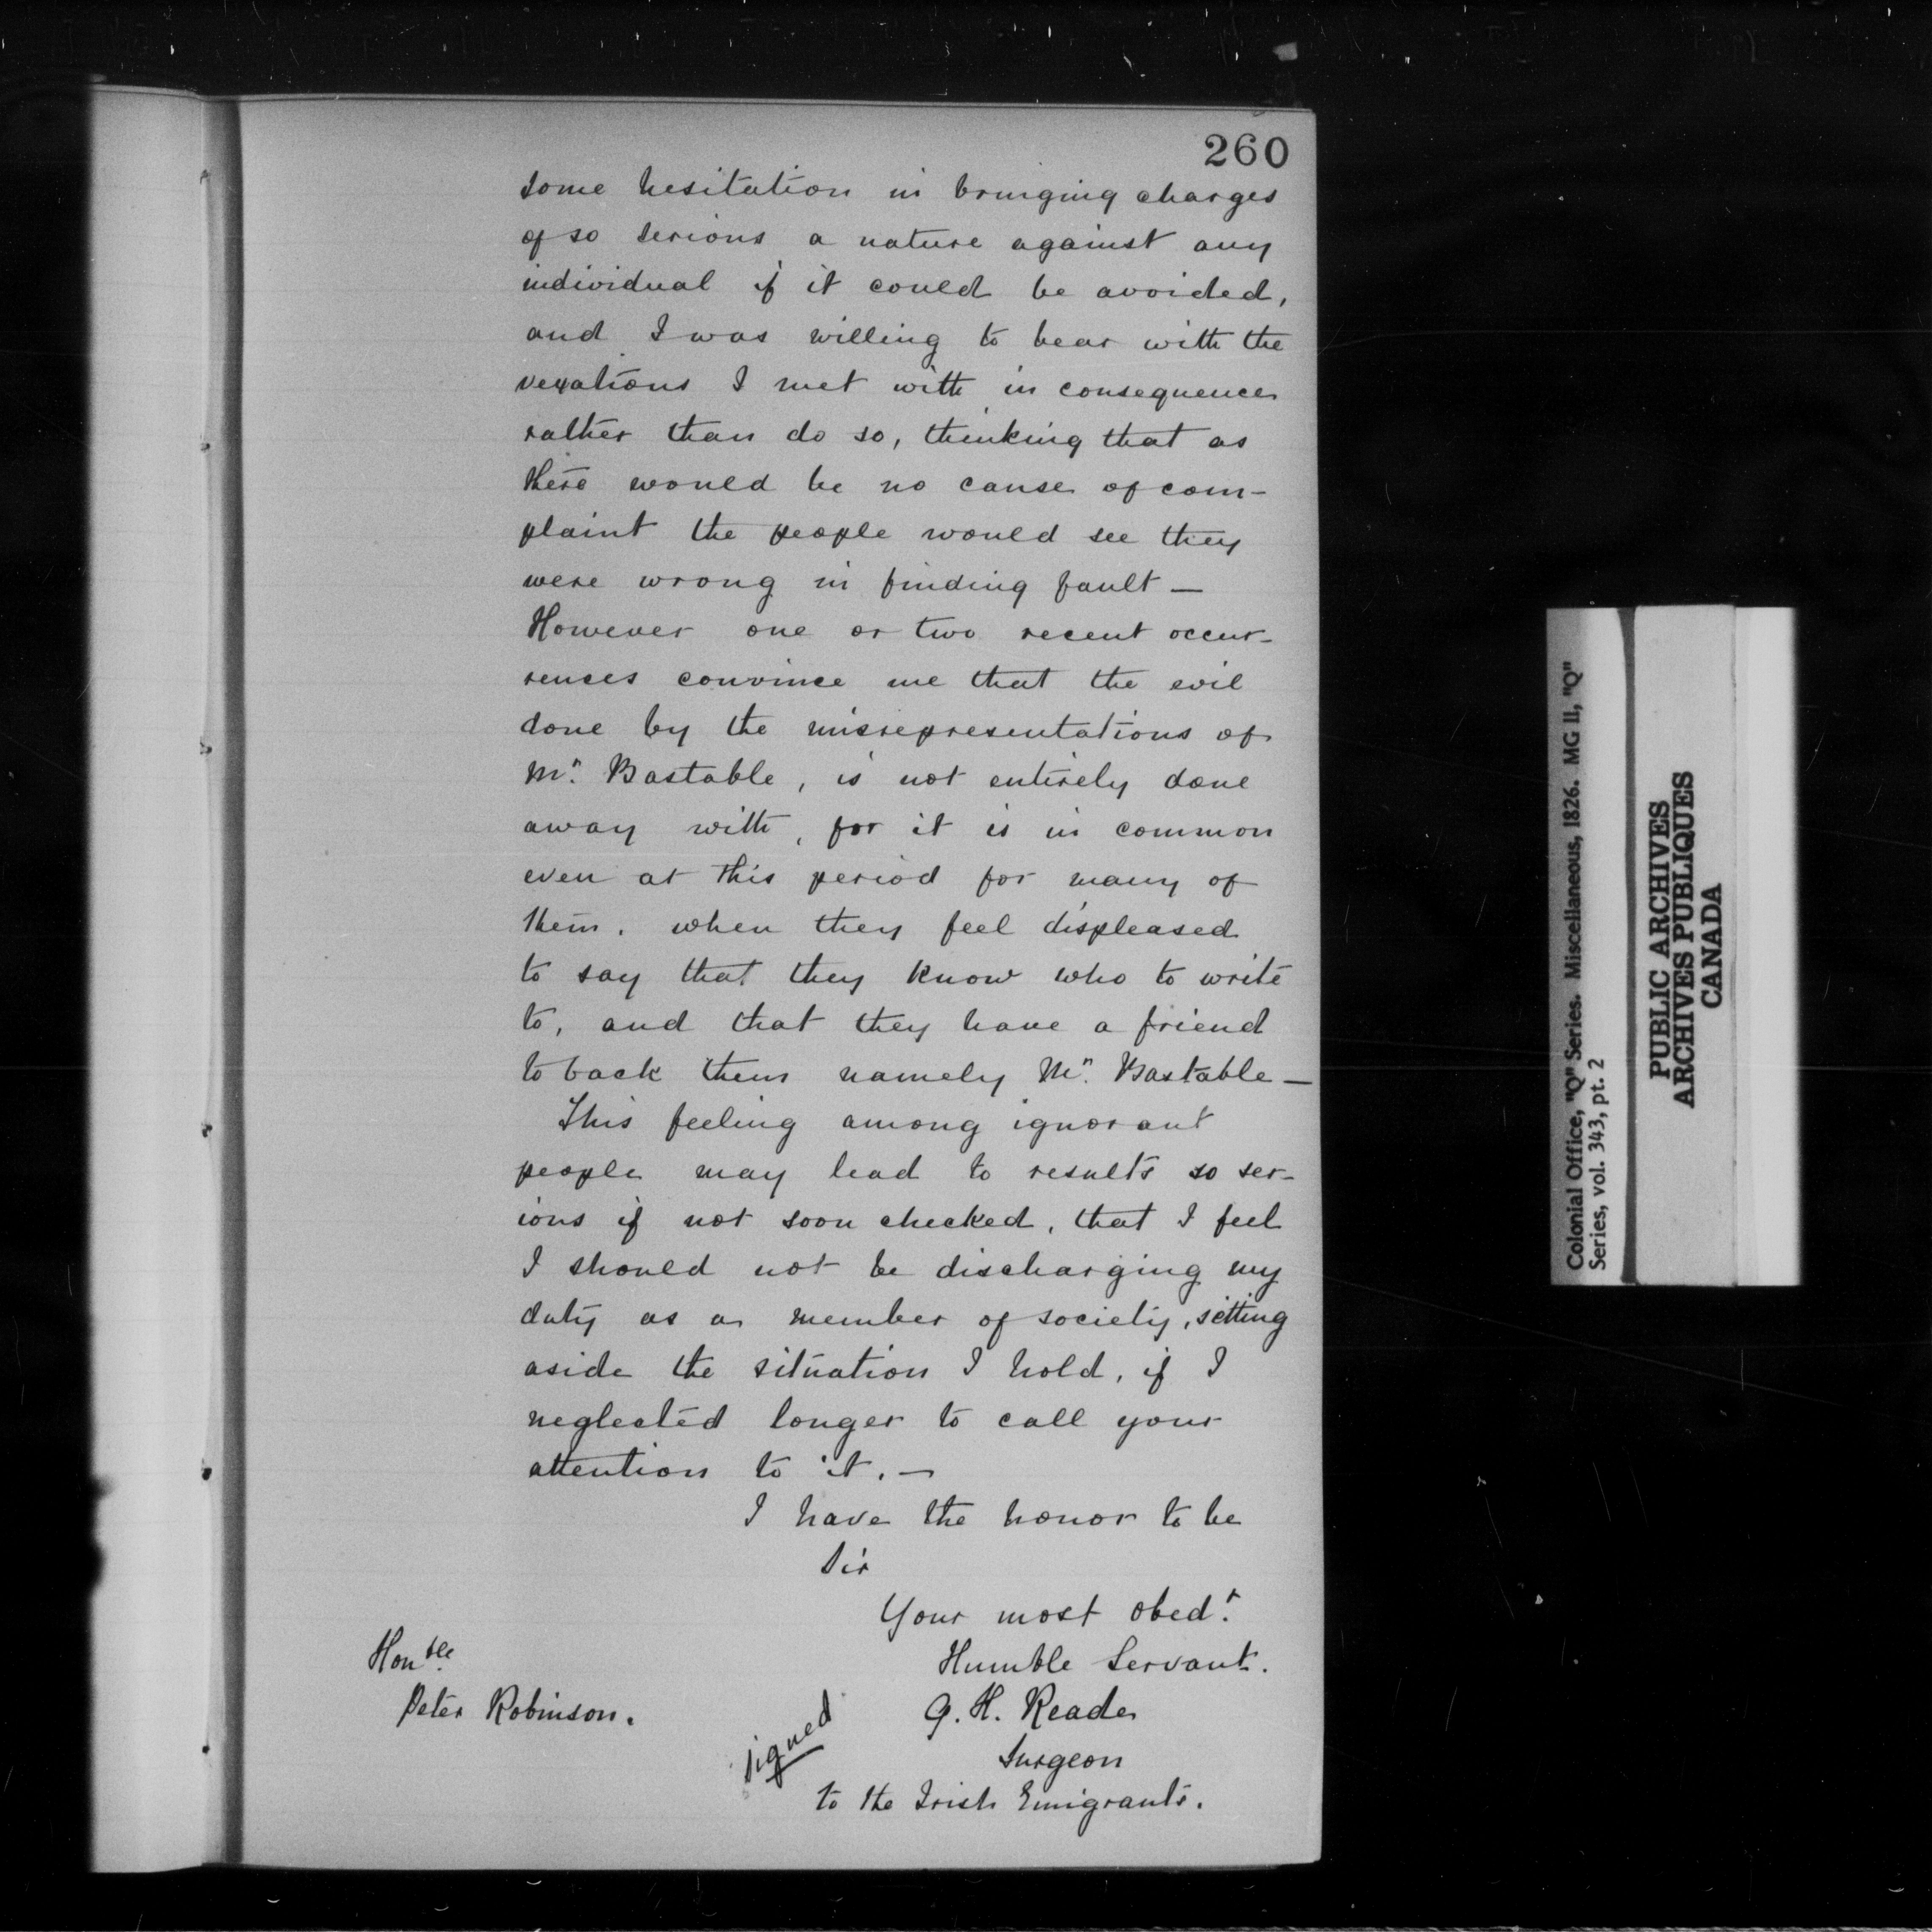 260
some hesitation in bringing charges
of so serious a nature against any
individual if it could be avoided,
and I was willing to bear with the
vexations I met with in consequence
rather than do so, thinking that as
there would be no cause of com-
plaint the people would see they
were wrong in finding fault —
However one or two recent occur-
renses convince me that the evil
done by the misrepresentations of
Mr. Bastable, is not entirely done
away with, for it is in common
even at this period for many of
them. when they feel displeased
to say that they know who to write
to, and that they have a friend
to back them namely Mr. Bastable —
This feeling among ignorant
people may lead to results so ser-
ious if not soon checked, that I feel
I should not be discharging my
duty as a member of society, setting
aside the situation I hold, if I
neglected longer to call your
attention to it. —
I have the honor to be
Sir
Your most obedt.
Humble Servant.
Honble.
Peter Robinson.
signed
G. H. Reade
Surgeon
to the Irish Emigrants.
Colonial Office, "Q" Series. Miscellaneous, 1826. MG 11, "Q"
Series, vol. 343, pt. 2
PUBLIC ARCHIVES
ARCHIVES PUBLIQUES
CANADA